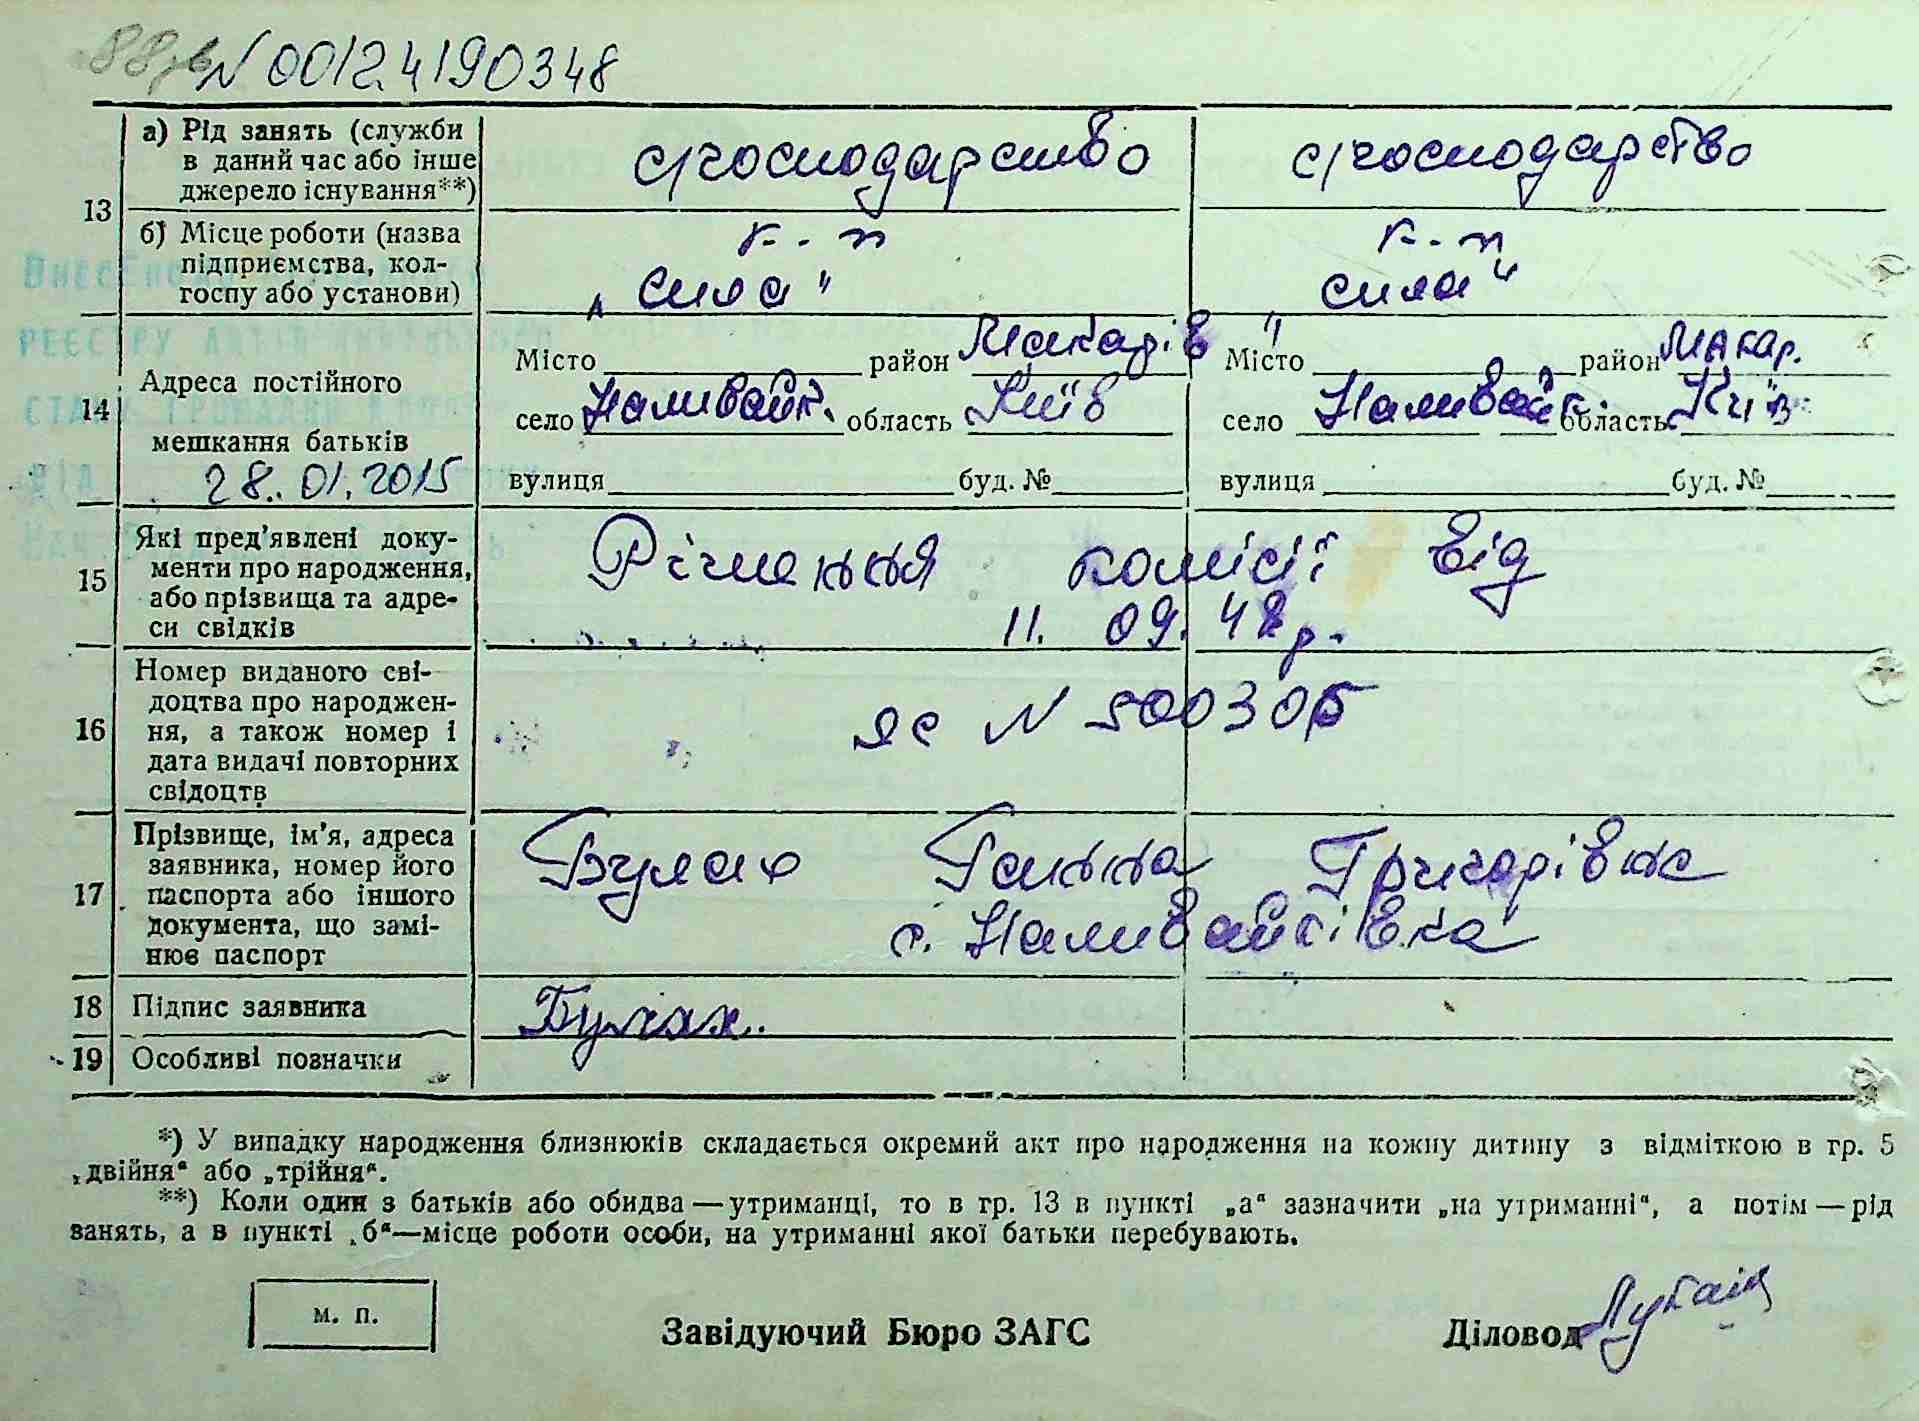 88зв N 00124190348
13
а) Рід занять (служби в даний час або інше джерело існування**)
с/господарство
с/господарство
б) Місце роботи (назва підприємства, колгоспу або установи)
к-п „Сила"
к-п „Сила"
Внесено
реєстру актів цивільного
стану громадян
від 28.01.2015
14
Адреса постійного мешкання батьків
Місто район Макарів
село Наливайк. область Київ
вулиця буд. №
Місто район Макар.
село Наливайк. область Київ
вулиця буд. №
15
Які пред'явлені доку-
менти про народження,
або прізвища та адре-
си свідків
Рішення комісії від
11. 09. 48 р.
16
Номер виданого сві-
доцтва про народжен-
ня, а також номер і
дата видачі повторних
свідоцтв
яс N 500305
17
Прізвище, ім'я, адреса
заявника, номер його
паспорта або іншого
документа, що замі-
нює паспорт
Булах Ганна Григорівна
с. Наливайківка
18 Підпис заявника
Булах.
19 Особливі позначки
*) У випадку народження близнюків складається окремий акт про народження на кожну дитину з відміткою в гр. 5
„двійня" або „трійня".
**) Коли один з батьків або обидва — утриманці, то в гр. 13 в пункті „а" зазначити „на утриманні", а потім — рід
занять, а в пункті „б"—місце роботи особи, на утриманні якої батьки перебувають.
м. п.
Завідуючий Бюро ЗАГС
Діловод